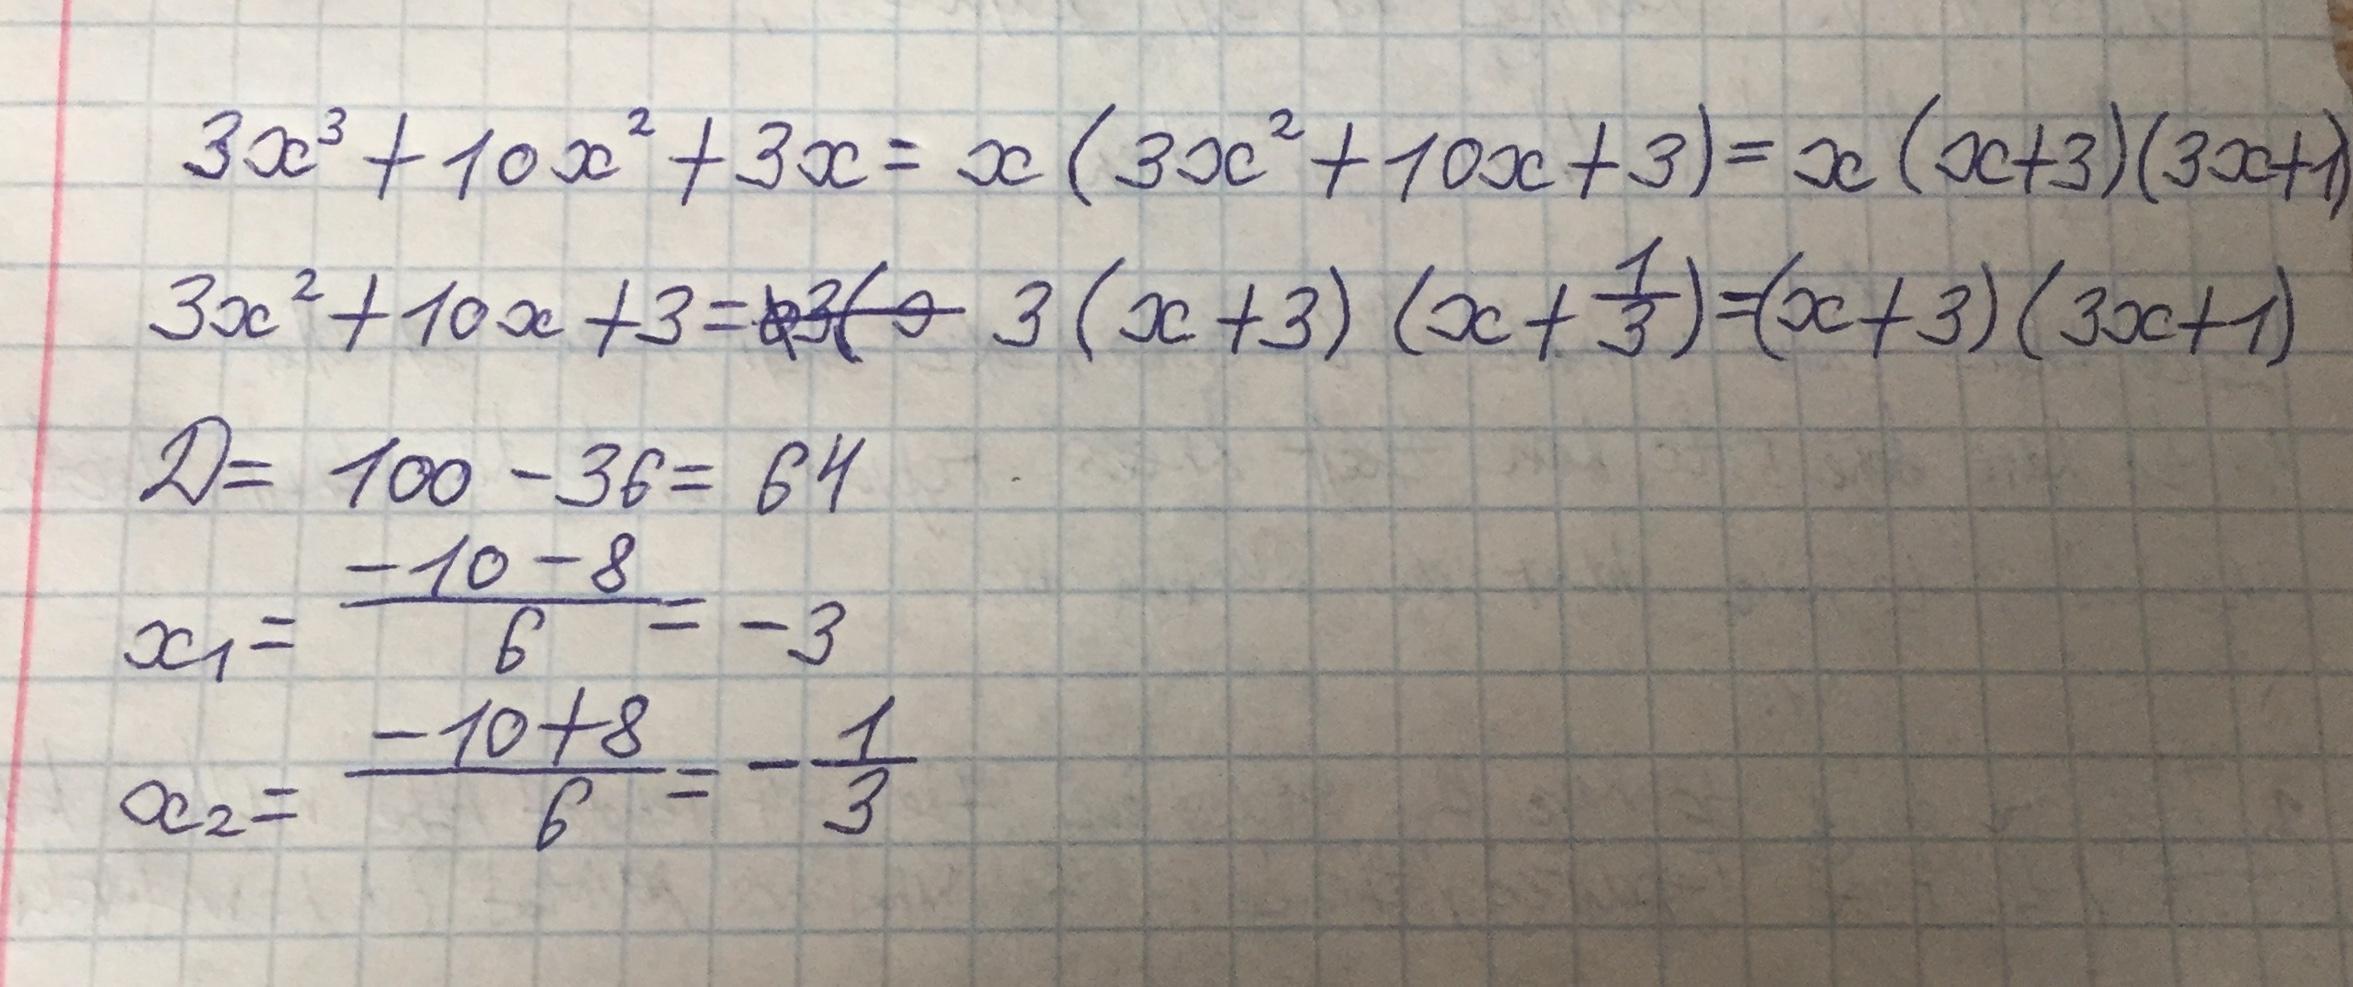 3x³ + 10x² + 3x = x(3x² + 10x + 3) = x(x+3)(3x+1)
3x² + 10x + 3 = 3(x+3)(x+1/3) = (x+3)(3x+1)
D = 100 - 36 = 64
x₁ = (-10-8)/6 = -3
x₂ = (-10+8)/6 = -1/3